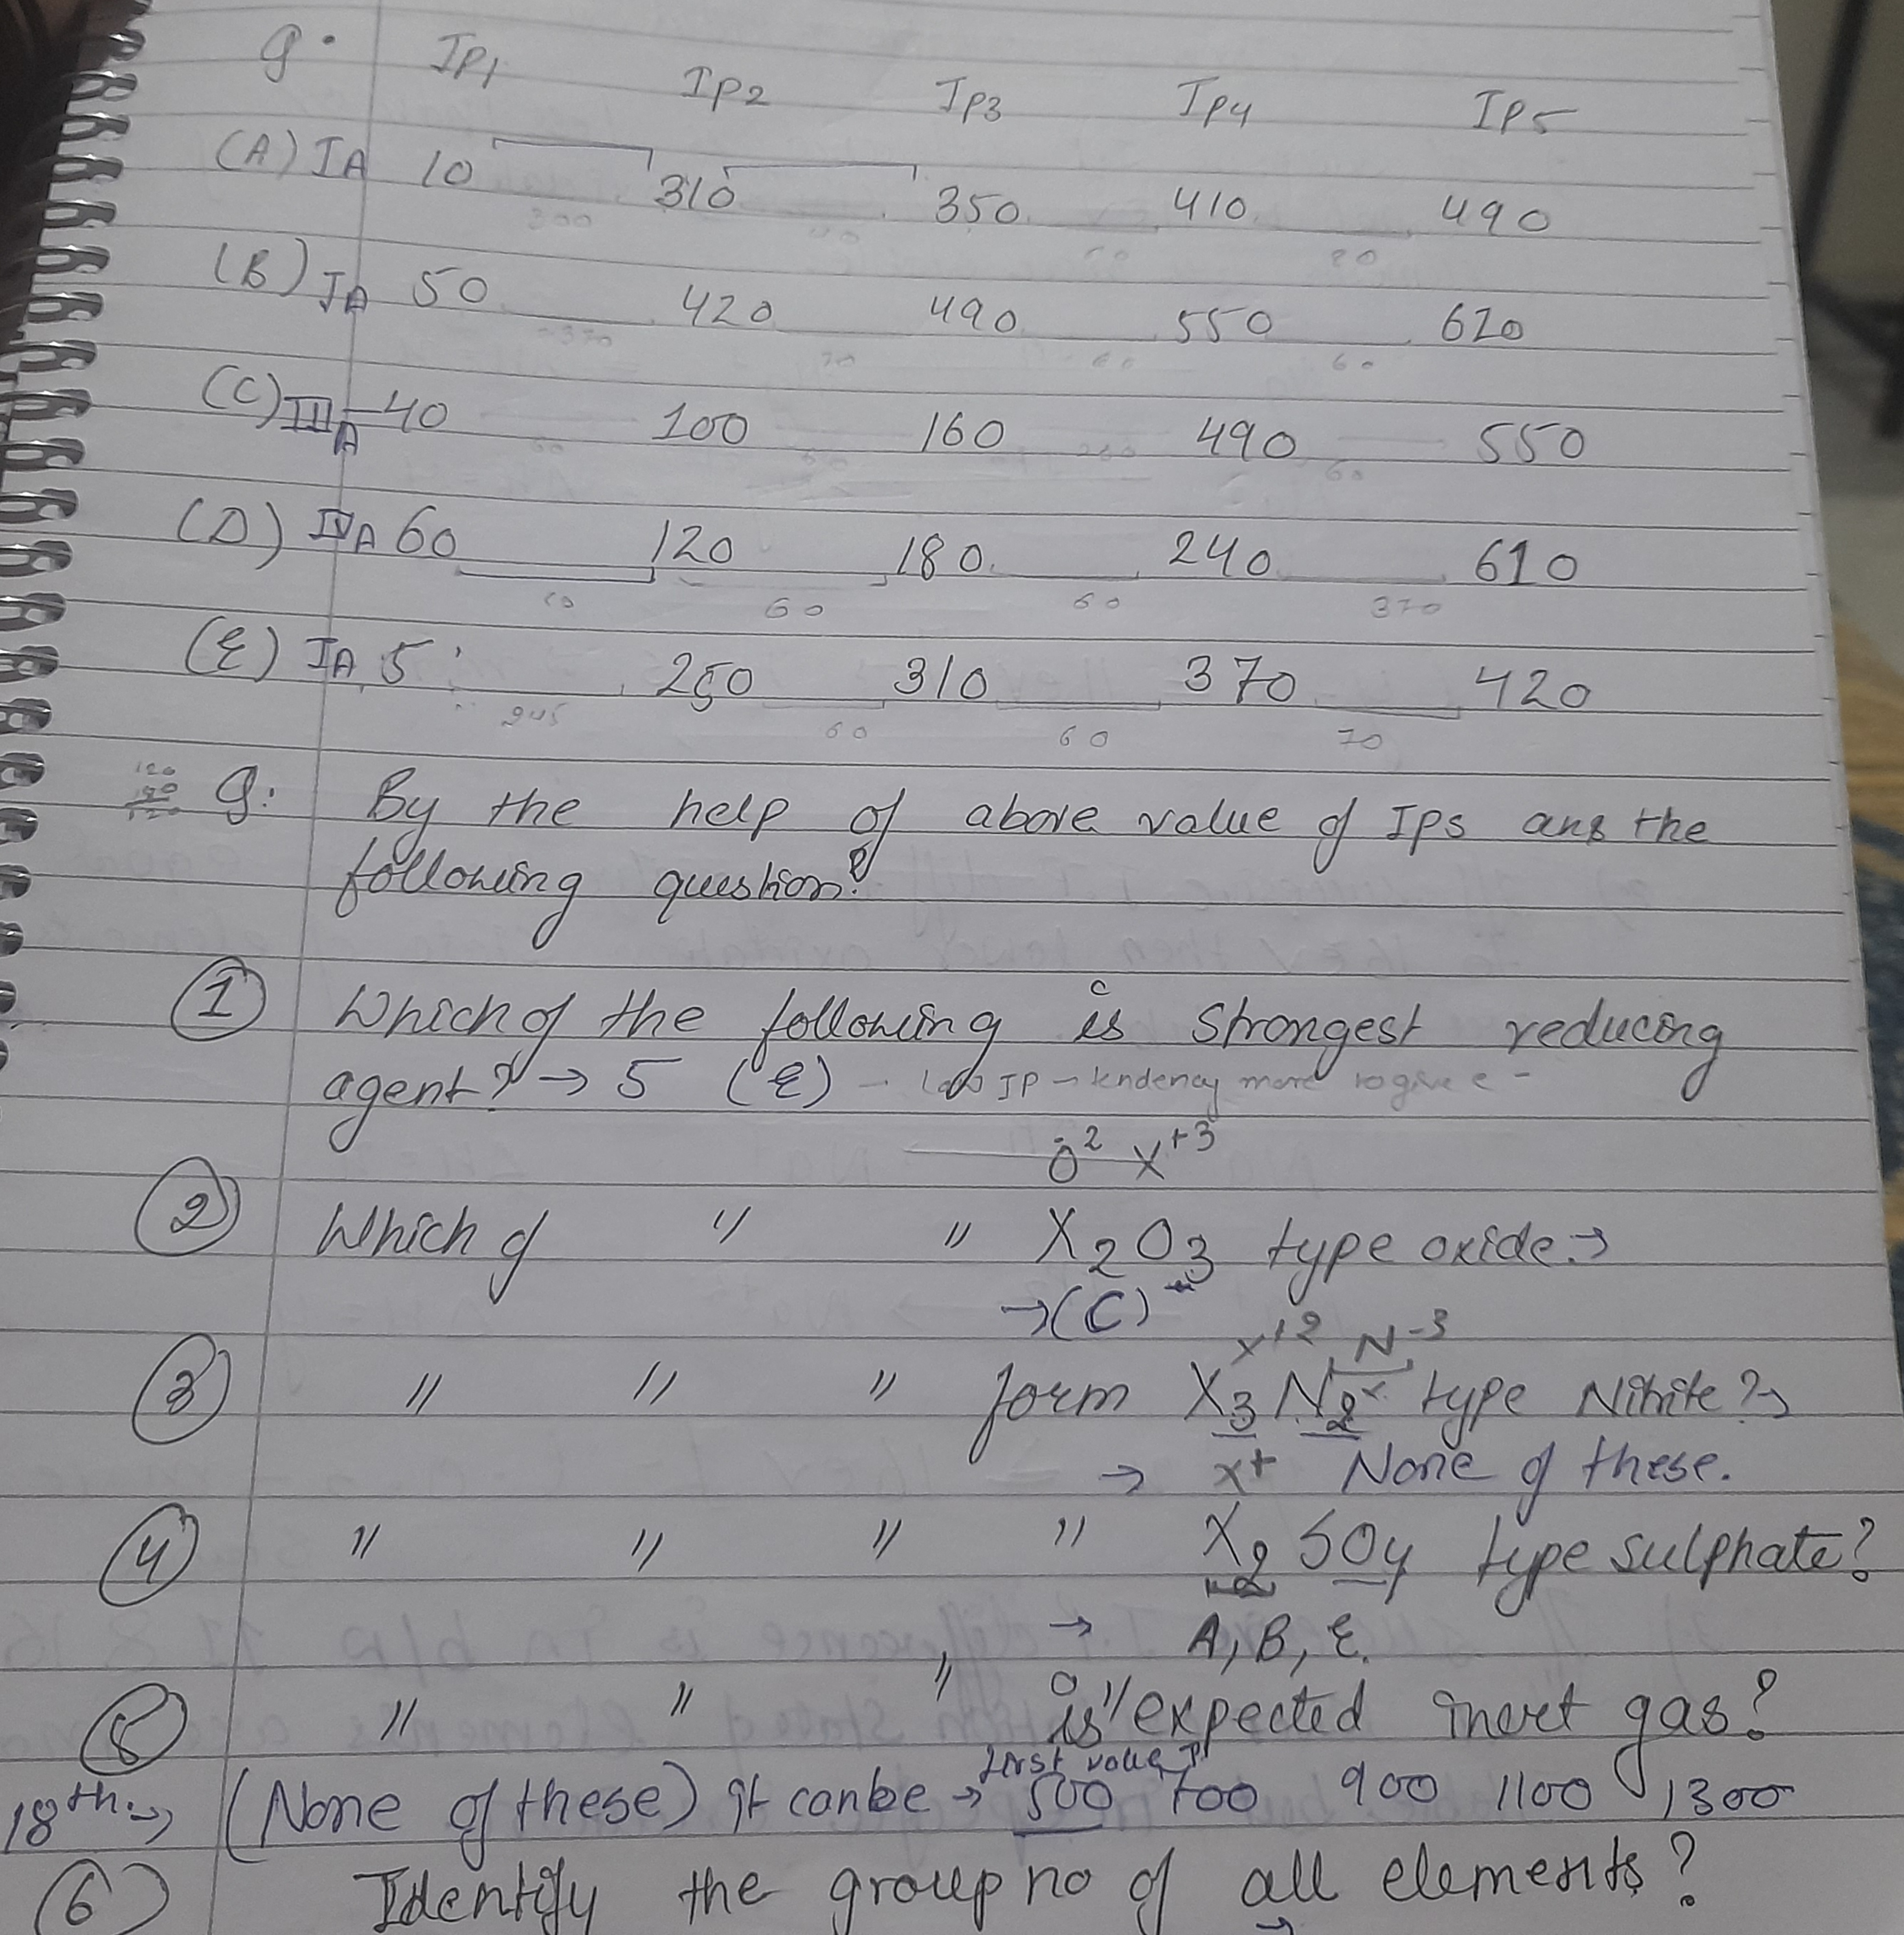 Q. IP1 IP2 IP3 IP4 IP5
(A) IA 10 310 350 410 490
300 60 80
(B) IA 50 420 490 550 620
370 70 60 60
(C) IIIA 40 100 160 490 550
60 60
(D) IVA 60 120 180 240 610
60 60 60 370
(E) IA 5 250 310 370 420
245 60 60 70
Q: By the help of above value of IPs ans the
following question?
① Which of the following is strongest reducing
agent? → 5 (E) - low IP - tendency more to give e-
O-2 X+3
② Which of " " X2O3 type oxide →
→ (C)
X+2 N-3
③ " " " form X3N2 type Nitrite? →
→ x+ None of these.
④ " " " " X2SO4 type sulphate?
→ A, B, E.
⑤ " " " is expected inert gas?
first value
18th → (None of these) it can be → 500 700 900 1100 1300
⑥ Identify the group no of all elements?
→